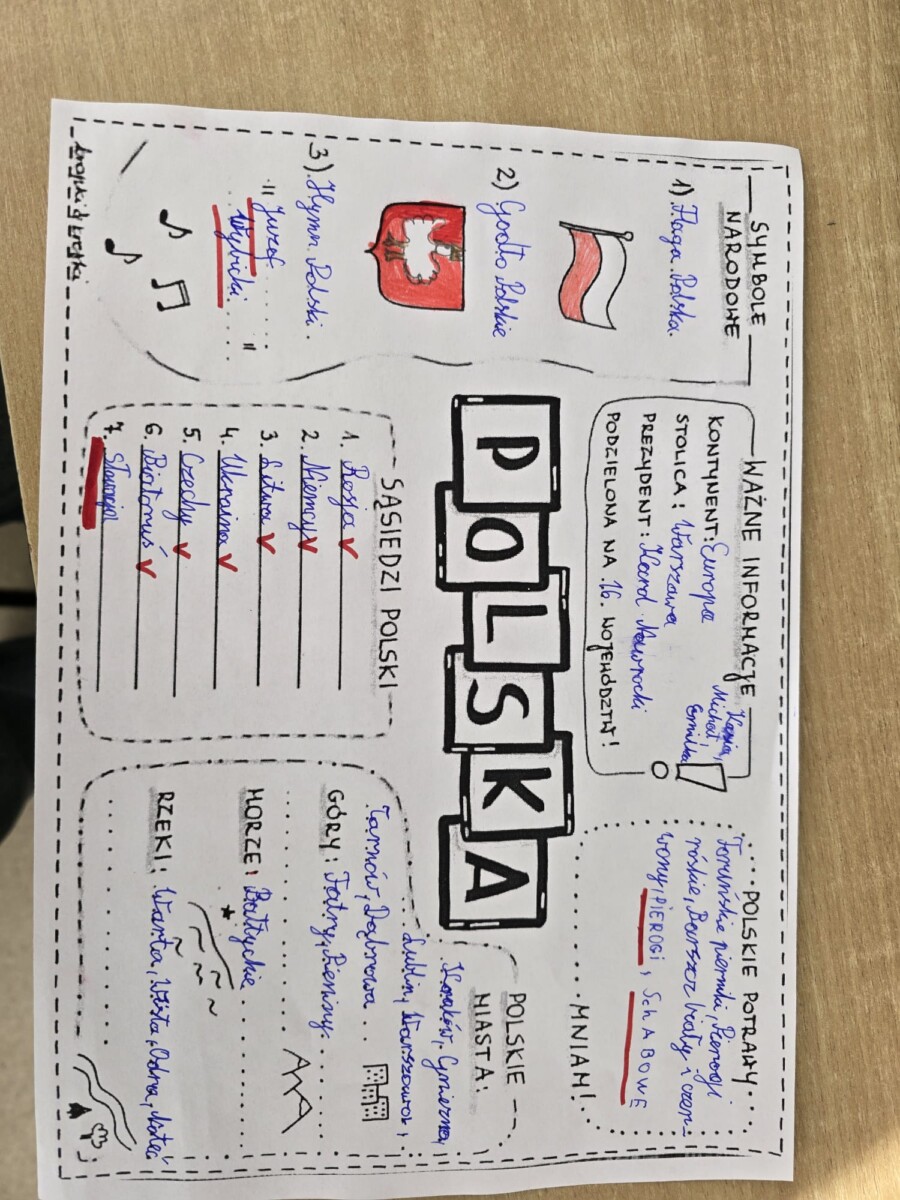 SYMBOLE
NARODOWE
1) Flaga Polska.
2) Godło Polskie
3) Hymn Polski.
" Juzef
Wybicki "
kropki & kreski
WAŻNE INFORMACJE
Kasia,
Michał i
Emilka
KONTYNENT: Europa
STOLICA: Warszawa
PREZYDENT: Karol Nawrocki
PODZIELONA NA 16. WOJEWÓDZTW!
POLSKA
SĄSIEDZI POLSKI
1. Rosja
2. Niemcy
3. Litwa
4. Ukraina
5. Czechy
6. Białoruś
7.
POLSKIE POTRAWY
Toruńskie pierniki, Pierogi
ruskie, Barszcz biały i czer-
wony, PIEROGI, SCHABOWE
MNIAM!
POLSKIE
MIASTA:
Kraków, Gniezno,
Lublin, Warszawa,
Tarnów, Dąbrowa
GÓRY: Tatry, Pieniny
MORZE: Bałtyckie
RZEKI: Warta, Wisła, Odra, Noteć